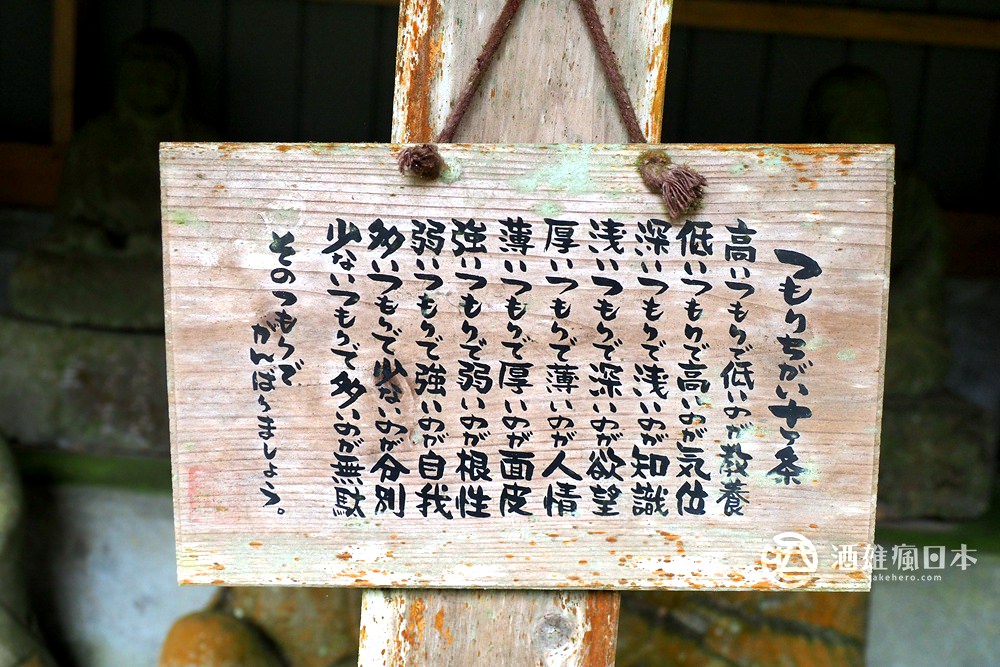 つもりちがい十ヶ条
高いつもりで低いのが教養
低いつもりで高いのが気位
深いつもりで浅いのが知識
浅いつもりで深いのが欲望
厚いつもりで薄いのが人情
薄いつもりで厚いのが面皮
強いつもりで弱いのが根性
弱いつもりで強いのが自我
多いつもりで少ないのが分別
少ないつもりで多いのが無駄
そのつもりで
がんばりましょう。
酒雄瘋日本
sakehero.com